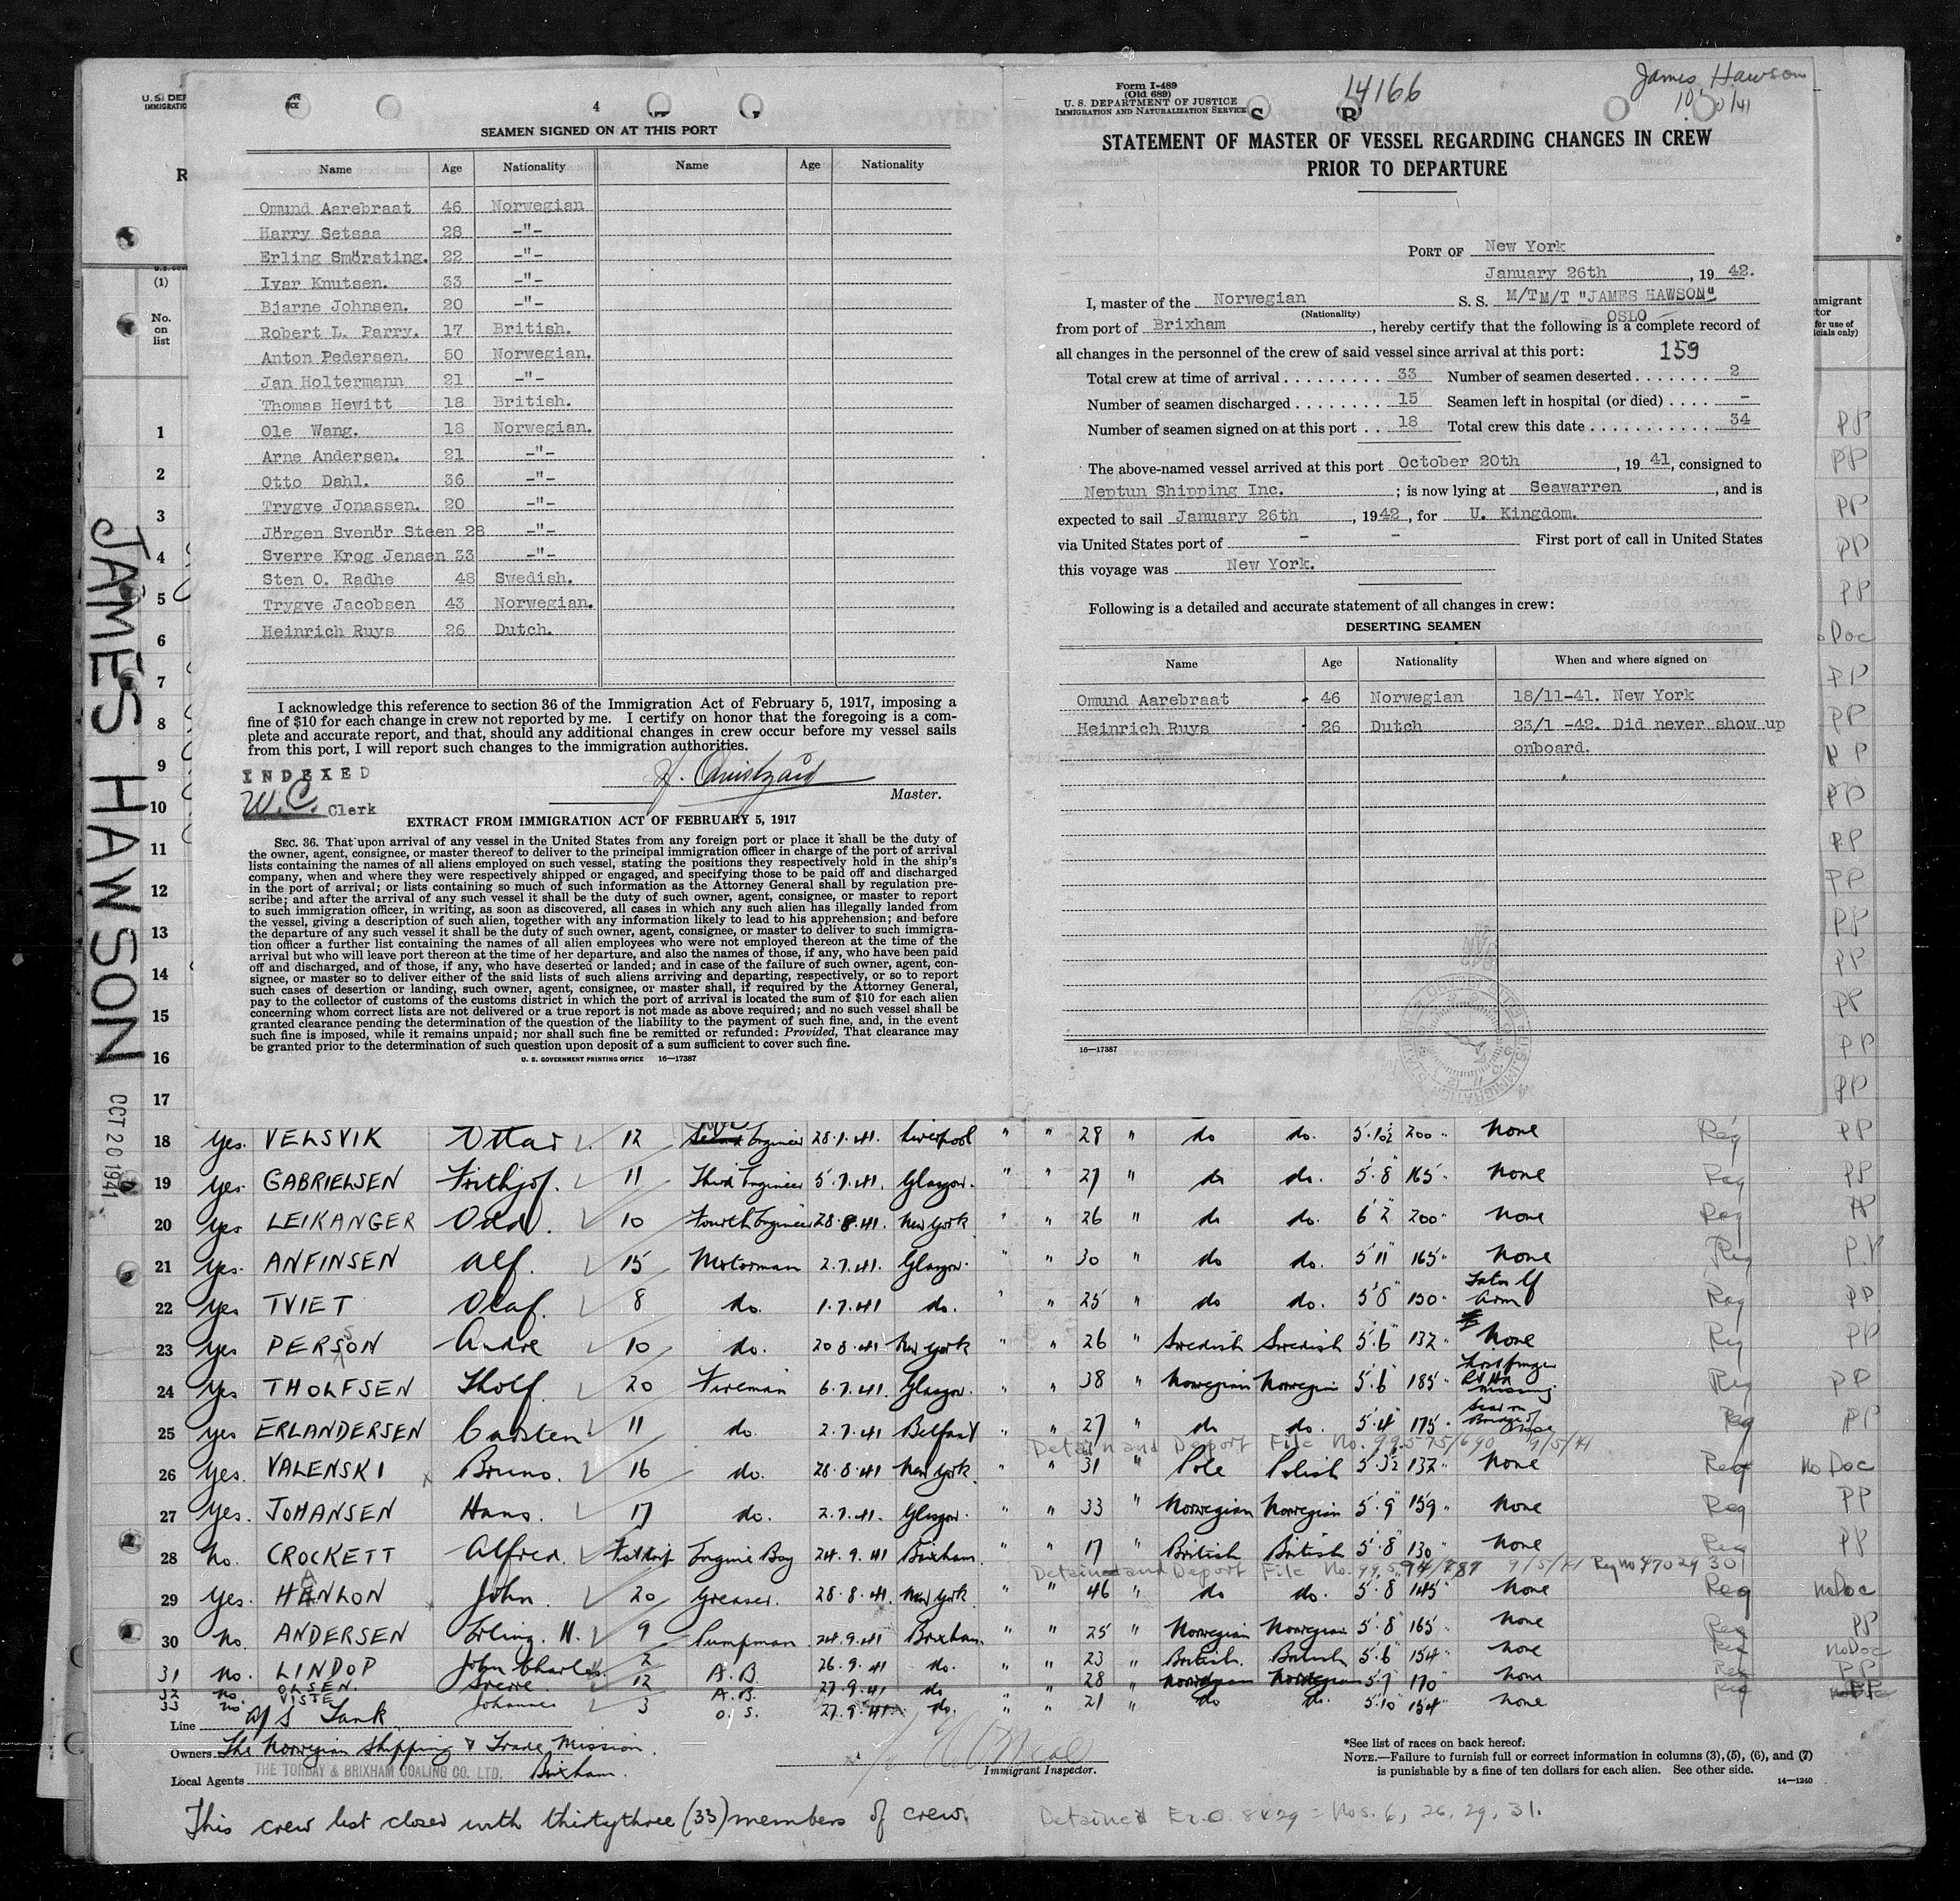 4
SEAMEN SIGNED ON AT THIS PORT
Name Age Nationality Name Age Nationality
Omund Aarebraat 46 Norwegian
Harry Setsaa 28 -"-
Erling Smörating. 22 -"-
Ivar Knutsen. 33 -"-
Bjarne Johnsen. 20 -"-
Robert L. Parry. 17 British.
Anton Pedersen. 50 Norwegian.
Jan Holtermann 21 -"-
Thomas Hewitt 18 British.
Ole Wang. 18 Norwegian.
Arne Andersen. 21 -"-
Otto Dahl. 36 -"-
Trygve Jonassen. 20 -"-
Jörgen Svenör Steen 28 -"-
Sverre Krog Jensen 33 -"-
Sten O. Radhe 48 Swedish.
Trygve Jacobsen 43 Norwegian.
Heinrich Ruys 26 Dutch.
I acknowledge this reference to section 36 of the Immigration Act of February 5, 1917, imposing a
fine of $10 for each change in crew not reported by me. I certify on honor that the foregoing is a com-
plete and accurate report, and that, should any additional changes in crew occur before my vessel sails
from this port, I will report such changes to the immigration authorities.
INDEXED
W.C. Clerk
Master.
EXTRACT FROM IMMIGRATION ACT OF FEBRUARY 5, 1917
SEC. 36. That upon arrival of any vessel in the United States from any foreign port or place it shall be the duty of
the owner, agent, consignee, or master thereof to deliver to the principal immigration officer in charge of the port of arrival
lists containing the names of all aliens employed on such vessel, stating the positions they respectively hold in the ship's
company, when and where they were respectively shipped or engaged, and specifying those to be paid off and discharged
in the port of arrival; or lists containing so much of such information as the Attorney General shall by regulation pre-
scribe; and after the arrival of any such vessel it shall be the duty of such owner, agent, consignee, or master to report
to such immigration officer, in writing, as soon as discovered, all cases in which any such alien has illegally landed from
the vessel, giving a description of such alien, together with any information likely to lead to his apprehension; and before
the departure of any such vessel it shall be the duty of such owner, agent, consignee, or master to deliver to such immigra-
tion officer a further list containing the names of all alien employees who were not employed thereon at the time of the
arrival but who will leave port thereon at the time of her departure, and also the names of those, if any, who have been paid
off and discharged, and of those, if any, who have deserted or landed; and in case of the failure of such owner, agent, con-
signee, or master so to deliver either of the said lists of such aliens arriving and departing, respectively, or so to report
such cases of desertion or landing, such owner, agent, consignee, or master shall, if required by the Attorney General,
pay to the collector of customs of the customs district in which the port of arrival is located the sum of $10 for each alien
concerning whom correct lists are not delivered or a true report is not made as above required; and no such vessel shall be
granted clearance pending the determination of the question of the liability to the payment of such fine, and, in the event
such fine is imposed, while it remains unpaid; nor shall such fine be remitted or refunded: Provided, That clearance may
be granted prior to the determination of such question upon deposit of a sum sufficient to cover such fine.
U. S. GOVERNMENT PRINTING OFFICE 16—17387
Form I-489
(Old 689)
U. S. DEPARTMENT OF JUSTICE
IMMIGRATION AND NATURALIZATION SERVICE
14166
James Hawson
STATEMENT OF MASTER OF VESSEL REGARDING CHANGES IN CREW
PRIOR TO DEPARTURE
PORT OF New York
January 26th, 19 42.
I, master of the Norwegian S. S. M/T M/T "JAMES HAWSON"
(Nationality) OSLO
from port of Brixham, hereby certify that the following is a complete record of
all changes in the personnel of the crew of said vessel since arrival at this port: 159
Total crew at time of arrival 33 Number of seamen deserted 2
Number of seamen discharged 15 Seamen left in hospital (or died) -
Number of seamen signed on at this port 18 Total crew this date 34
The above-named vessel arrived at this port October 20th, 19 41, consigned to
Neptun Shipping Inc. ; is now lying at Seawarren, and is
expected to sail January 26th, 1942, for U. Kingdom.
via United States port of - - First port of call in United States
this voyage was New York.
Following is a detailed and accurate statement of all changes in crew:
DESERTING SEAMEN
Name Age Nationality When and where signed on
Omund Aarebraat 46 Norwegian 18/11-41. New York
Heinrich Ruys 26 Dutch 23/1 -42. Did never show up
onboard.
16—17387
JAMES HAWSON
OCT 20 1941
(1)
No.
on
list
1 PP
2 PP
3 PP
4 PP
5 PP
6 Doc
7 PP
8 PP
9 PP
10 PP
11 PP
12 PP
13 PP
14 PP
15 PP
16 PP
17 PP
18 yes. VELSVIK Ottar 12 Engineer 28.1.41. Liverpool " " 28 " do do. 5'10½ 200 None Reg PP
19 yes. GABRIELSEN Frithjof. 11 Third Engineer 5.7.41. Glasgow. 27 " do do. 5'8" 165 None Reg PP
20 yes LEIKANGER Odd. 10 Fourth Engineer 28.8.41. New York " 26 " do do. 6'2" 200 None Reg PP
21 yes. ANFINSEN Alf. 15 Motorman 2.7.41. Glasgow. " 30 " do do. 5'11" 165 None Reg PP
22 yes TVIET Olaf. 8 do. 1.7.41 do. " 25 " do do. 5'8" 150 Arm Reg PP
23 yes PERSSON Andre 10 do. 20.8.41 New York " " 26 " Swedish Swedish 5'6" 132 None Reg PP
24 yes THOLFSEN Tholf. 20 Fireman 6.7.41. Glasgow. " " 38 " Norwegian Norwegian 5'6" 185 missing Reg PP
25 yes ERLANDERSEN Carsten 11 do. 2.7.41 Belfast " " 27 " do do. 5'4" 175 Scar on Bridge of nose Reg PP
Detain and Deport File No. 99575/690 9/5/41
26 yes. VALENSKI Bruno. 16 do. 28.8.41 New York. " " 31 " Pole Polish 5'3½ 132 None Reg no Doc
27 yes. JOHANSEN Hans. 17 do. 2.7.41. Glasgow. " " 33 " Norwegian Norwegian 5'9" 159 None Reg PP
28 No. CROCKETT Alfred. First trip Engine Boy 24.9.41 Brixham. " " 17 " British British 5'8" 130 None Reg PP
Detain and Deport File No. 9/5/41
29 Yes. HANLON John. 20 Greaser. 28.8.41 New York. " " 46 " do do. 5'8 145 None Reg no Doc
30 No. ANDERSEN Erling. H. 9 Pumpman 24.9.41 Brixham. " " 25 " Norwegian Norwegian 5'8" 165 None Reg PP
31 no. LINDOP John Charles. 2 A.B. 26.9.41 do. " " 23 " British. British 5'6" 154 None Reg no Doc
32 no. OLSEN. Sverre 12 A.B. 27.9.41 do " " 28 " Norwegian Norwegian 5'7" 170 None Reg PP
33 no VISTE Johannes 3 O.S. 27.9.41 do. " " 21 " do do. 5'10 154 None Reg PP
Line A/S Tank
Owners The Norwegian Shipping & Trade Mission.
Local Agents THE TORBAY & BRIXHAM COALING CO. LTD. Brixham.
Immigrant Inspector.
*See list of races on back hereof.
NOTE.—Failure to furnish full or correct information in columns (3), (5), (6), and (7)
is punishable by a fine of ten dollars for each alien. See other side.
14—1240
This crew list closed with thirtythree (33) members of crew.
Detained Ex.O. 8429 = Nos. 6, 26, 29, 31.